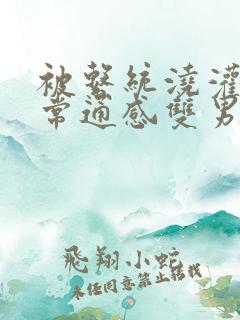 被繫統澆灌
常通感雙男
飛翔小蛇
未经同意禁止转载